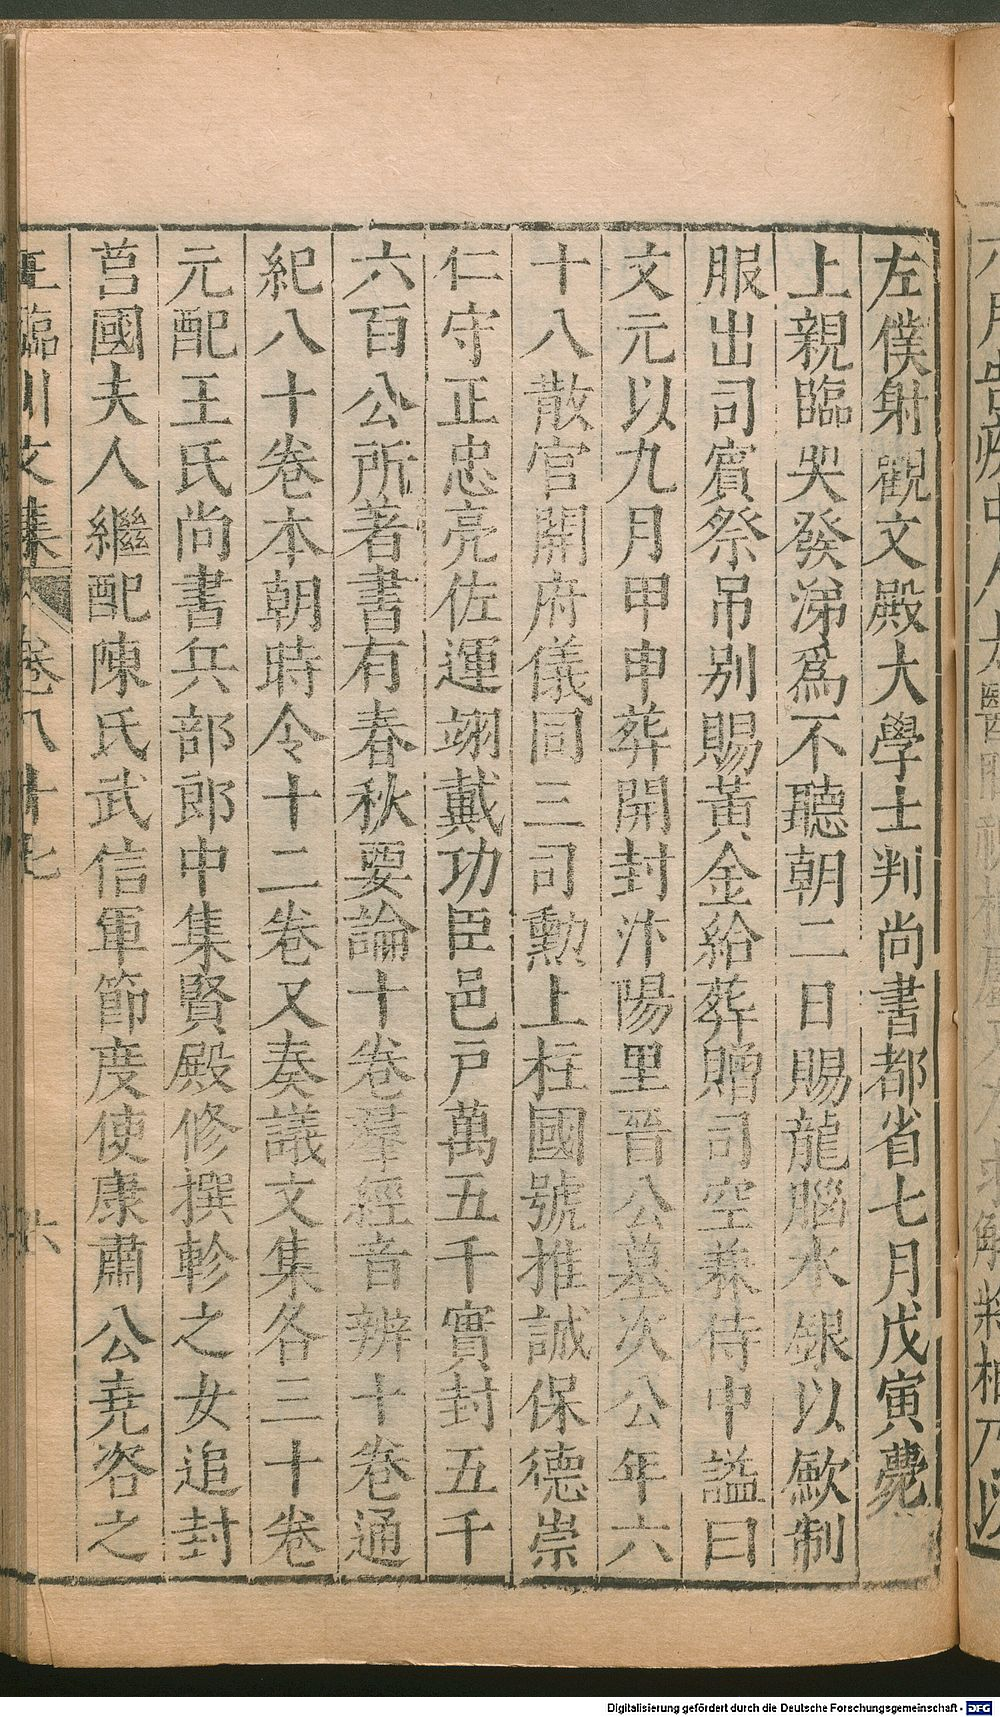 左僕射觀文殿大學士判尚書都省七月戊寅薨
上親臨哭發涕爲不聽朝二日賜龍腦水銀以斂制
服出司賓祭吊别賜黃金給葬贈司空兼侍中謚曰
文元以九月甲申葬開封汴陽里晉公墓次公年六
十八散官開府儀同三司勳上柱國號推誠保德崇
仁守正忠亮佐運翊戴功臣邑户萬五千實封五千
六百公所著書有春秋要論十卷羣經音辨十卷通
紀八十卷本朝時令十二卷又奏議文集各三十卷
元配王氏尚書兵部郎中集賢殿修撰軫之女追封
莒國夫人繼配陳氏武信軍節度使康肅公堯咨之
王臨川文集 卷八十七 六
Digitalisierung gefördert durch die Deutsche Forschungsgemeinschaft - DFG